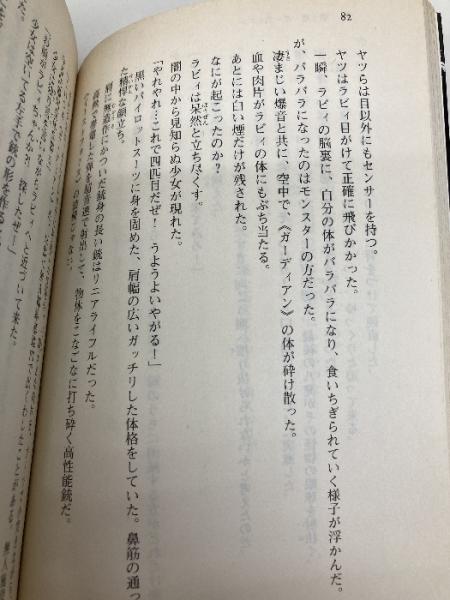 82
ヤツらは目以外にもセンサーを持つ。
ヤツはラビィ目がけて正確に飛びかかった。
一瞬、ラビィの脳裏に、自分の体がバラバラになり、食いちぎられていく様子が浮かんだ。
が、バラバラになったのはモンスターの方だった。
凄まじい爆音と共に、空中で《ガーディアン》の体が砕け散った。
血や肉片がラビィの体にもぶち当たる。
あとには白い煙だけが残された。
なにが起こったのか？
ラビィは呆然と立ち尽くす。
闇の中から見知らぬ少女が現れた。
「やれやれ…これで四匹目だぜ！ うようよいやがる！」
黒いパイロットスーツに身を固めた、肩幅の広いガッチリした体格をしていた。鼻筋の通っ
た精悍な顔立ち。
肩に無造作にかついだ銃身の長い銃はリニアライフルだった。
物体をこなごなに打ち砕く高性能銃だ。
ラビィへと近づいて来た。
探したぜー」
少女は空いてる左手で銃の形を作る